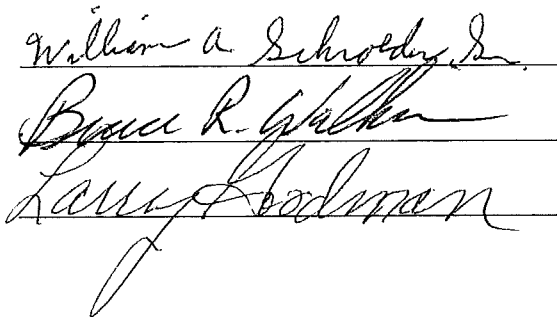 William A. Schroeder, Sr.
Bruce R. Walker
Larry Goodman